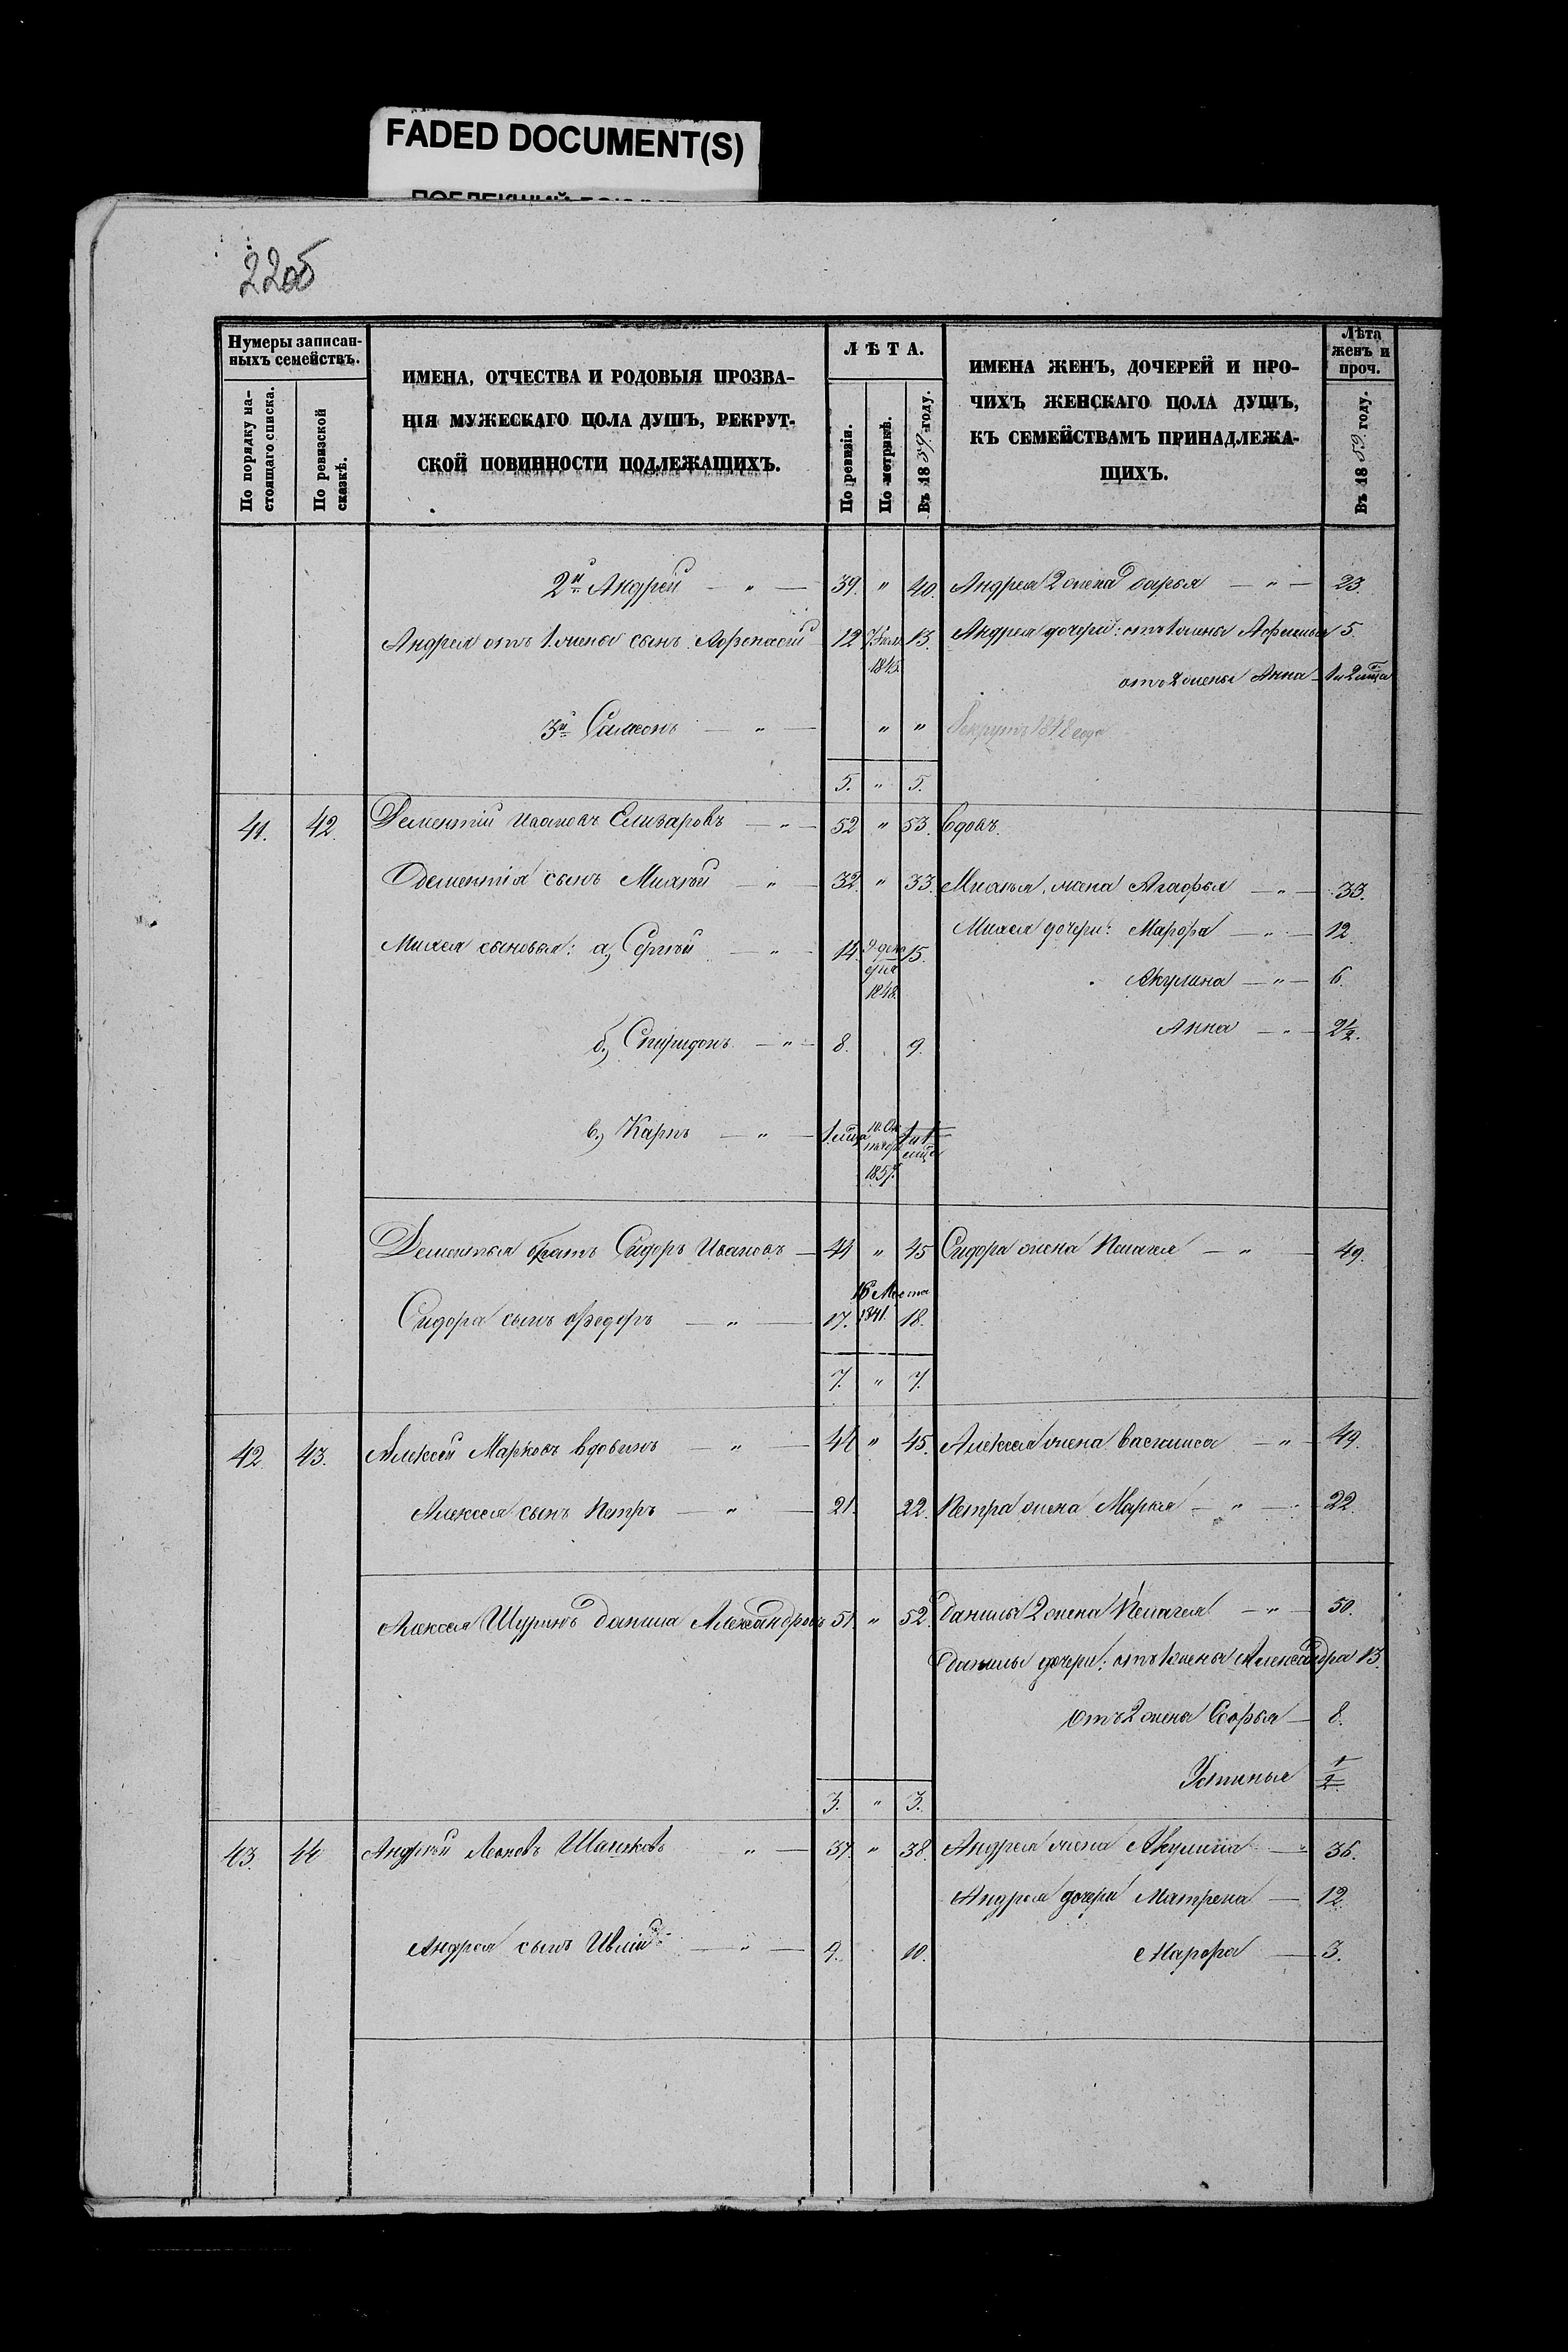 FADED DOCUMENT(S)
22об
Нумеры записан-
ныхъ семействъ.
По порядку на-
стоящаго списка.
По ревизской
сказкѣ.
ИМЕНА, ОТЧЕСТВА И РОДОВЫЯ ПРОЗВА-
НІЯ МУЖЕСКАГО ПОЛА ДУШЪ, РЕКРУТ-
СКОЙ ПОВИННОСТИ ПОДЛЕЖАЩИХЪ.
ЛѢТА.
По ревизіи.
По метрикѣ.
Въ 1859 году.
ИМЕНА ЖЕНЪ, ДОЧЕРЕЙ И ПРО-
ЧИХЪ ЖЕНСКАГО ПОЛА ДУШЪ,
КЪ СЕМЕЙСТВАМЪ ПРИНАДЛЕЖА-
ЩИХЪ.
Лѣта
женъ и
проч.
Въ 1859 году.
2й Андрей — " — 39. " 40. Андрея 2 жена Дарья — " — 23.
Андрея отъ 1 жены сынъ Афонасій 12 1845. 13. Андрея дочери: отъ 1 жены 5.
отъ 2 жены Анна 1 и 2 мца
3й Самсонъ — " — " " Рекрутъ 1848 года
5. " 5.
41. 42. Дементій Ивановъ Елизаровъ — " — 52 " 53. Вдовъ.
Дементія сынъ Михѣй — " — 32. " 33. Михѣя жена Агафья — " — 33.
Михея дочери: Марфа — " — 12.
Михея сыновья: а) Сергѣй — " — 14. 1843. 15.
Акулина — " — 6.
Анна — " — 2½.
б) Спиридонъ — " — 8. 9.
в) Карпъ — " — 1 мца 10. Октября 1857. 1 и 1 мца
Дементья братъ Сидоръ Ивановъ — 44 " 45 Сидора жена Пелагея — " — 49.
Сидора сынъ Федоръ — " — 17. 16 Марта 1841. 18.
7. " 7.
42. 43. Алексѣй Марковъ Вдовинъ — " — 44 " 45. Алексея жена Василиса — " — 49.
Алексея сынъ Петръ — " — 21. 22. Петра жена Марья — " — 22.
Алексея Шуринъ Данила Александровъ 51. " 52. Данилы 2 жена Пелагея — " — 50.
Данилы дочери: отъ 1 жены Александра 13.
отъ 2 жены Софья — 8.
Устинья ½
3. " 3.
43. 44 Андрѣй Леоновъ " — 37. " 38. Андрея жена Акулина — 36.
Андрея дочери Матрена — 12.
Андрея сынъ — " — 9. 10.
Марфа — 3.